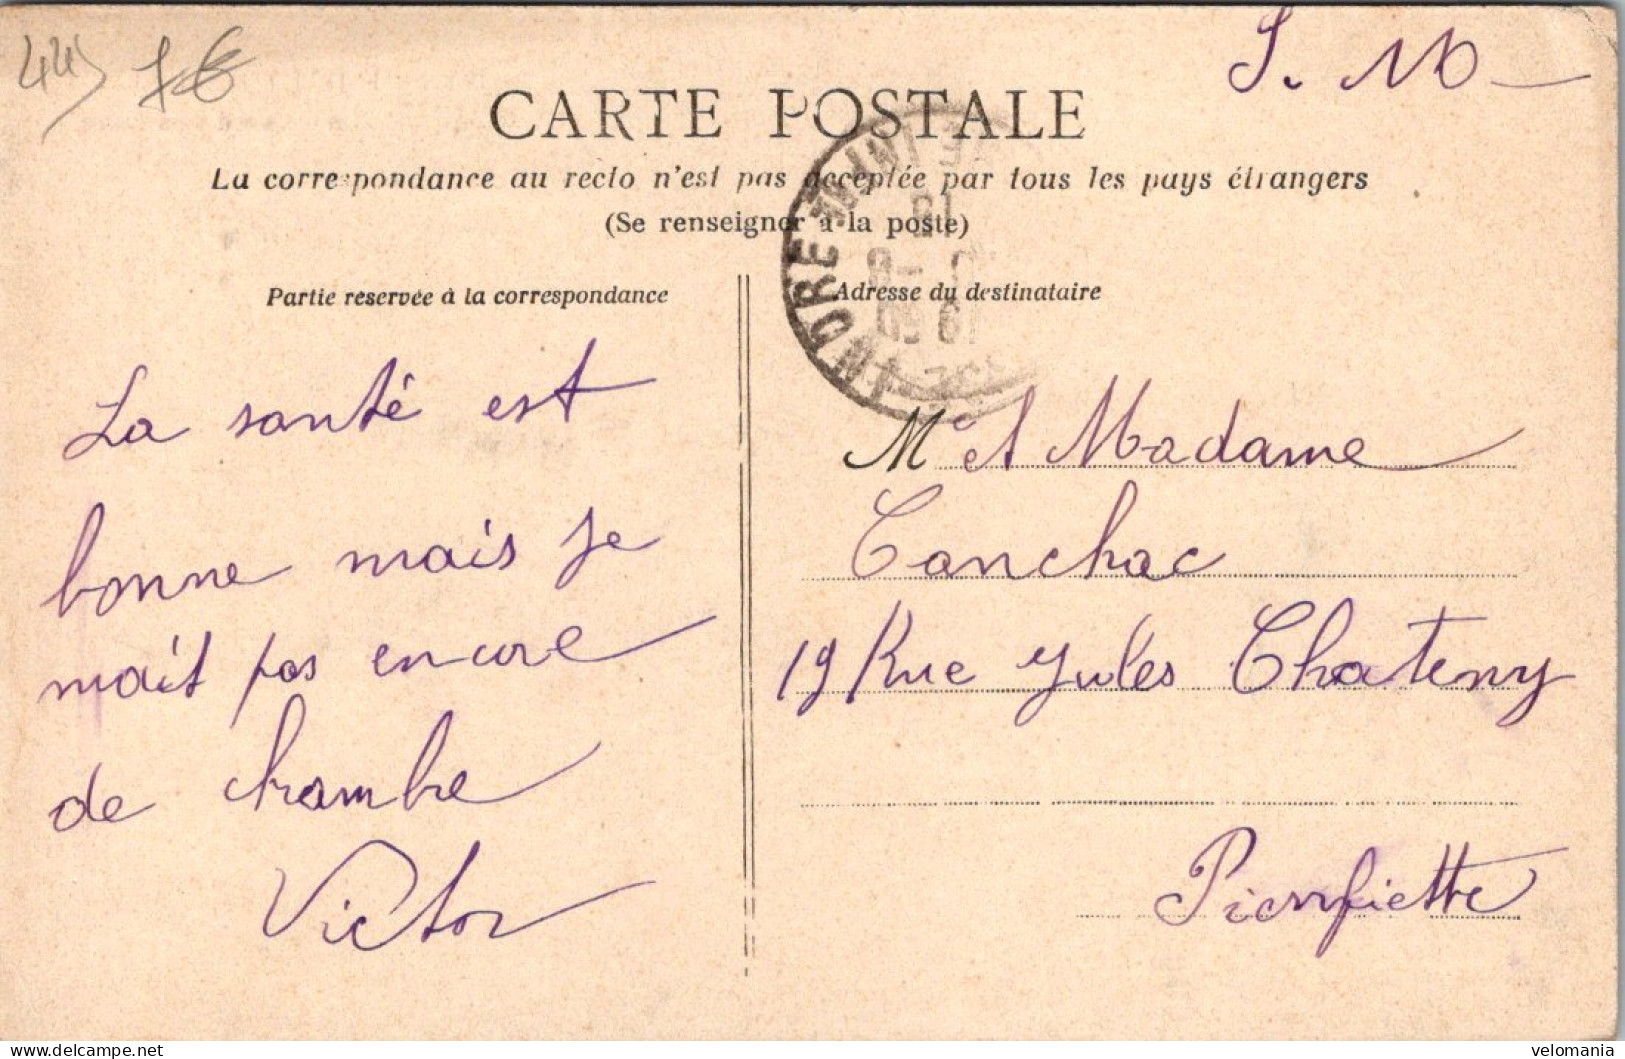 445 1€
S. M
CARTE POSTALE
La correspondance au recto n'est pas acceptée par tous les pays étrangers
(Se renseigner à la poste)
Partie réservée à la correspondance
Adresse du destinataire
INDRE
La santé est
bonne mais je
mait pas encore
de chambre
Victor
M et Madame
Canchac
19 Rue Jules Chateny
Pierrfiette
delcampe.net
velomania